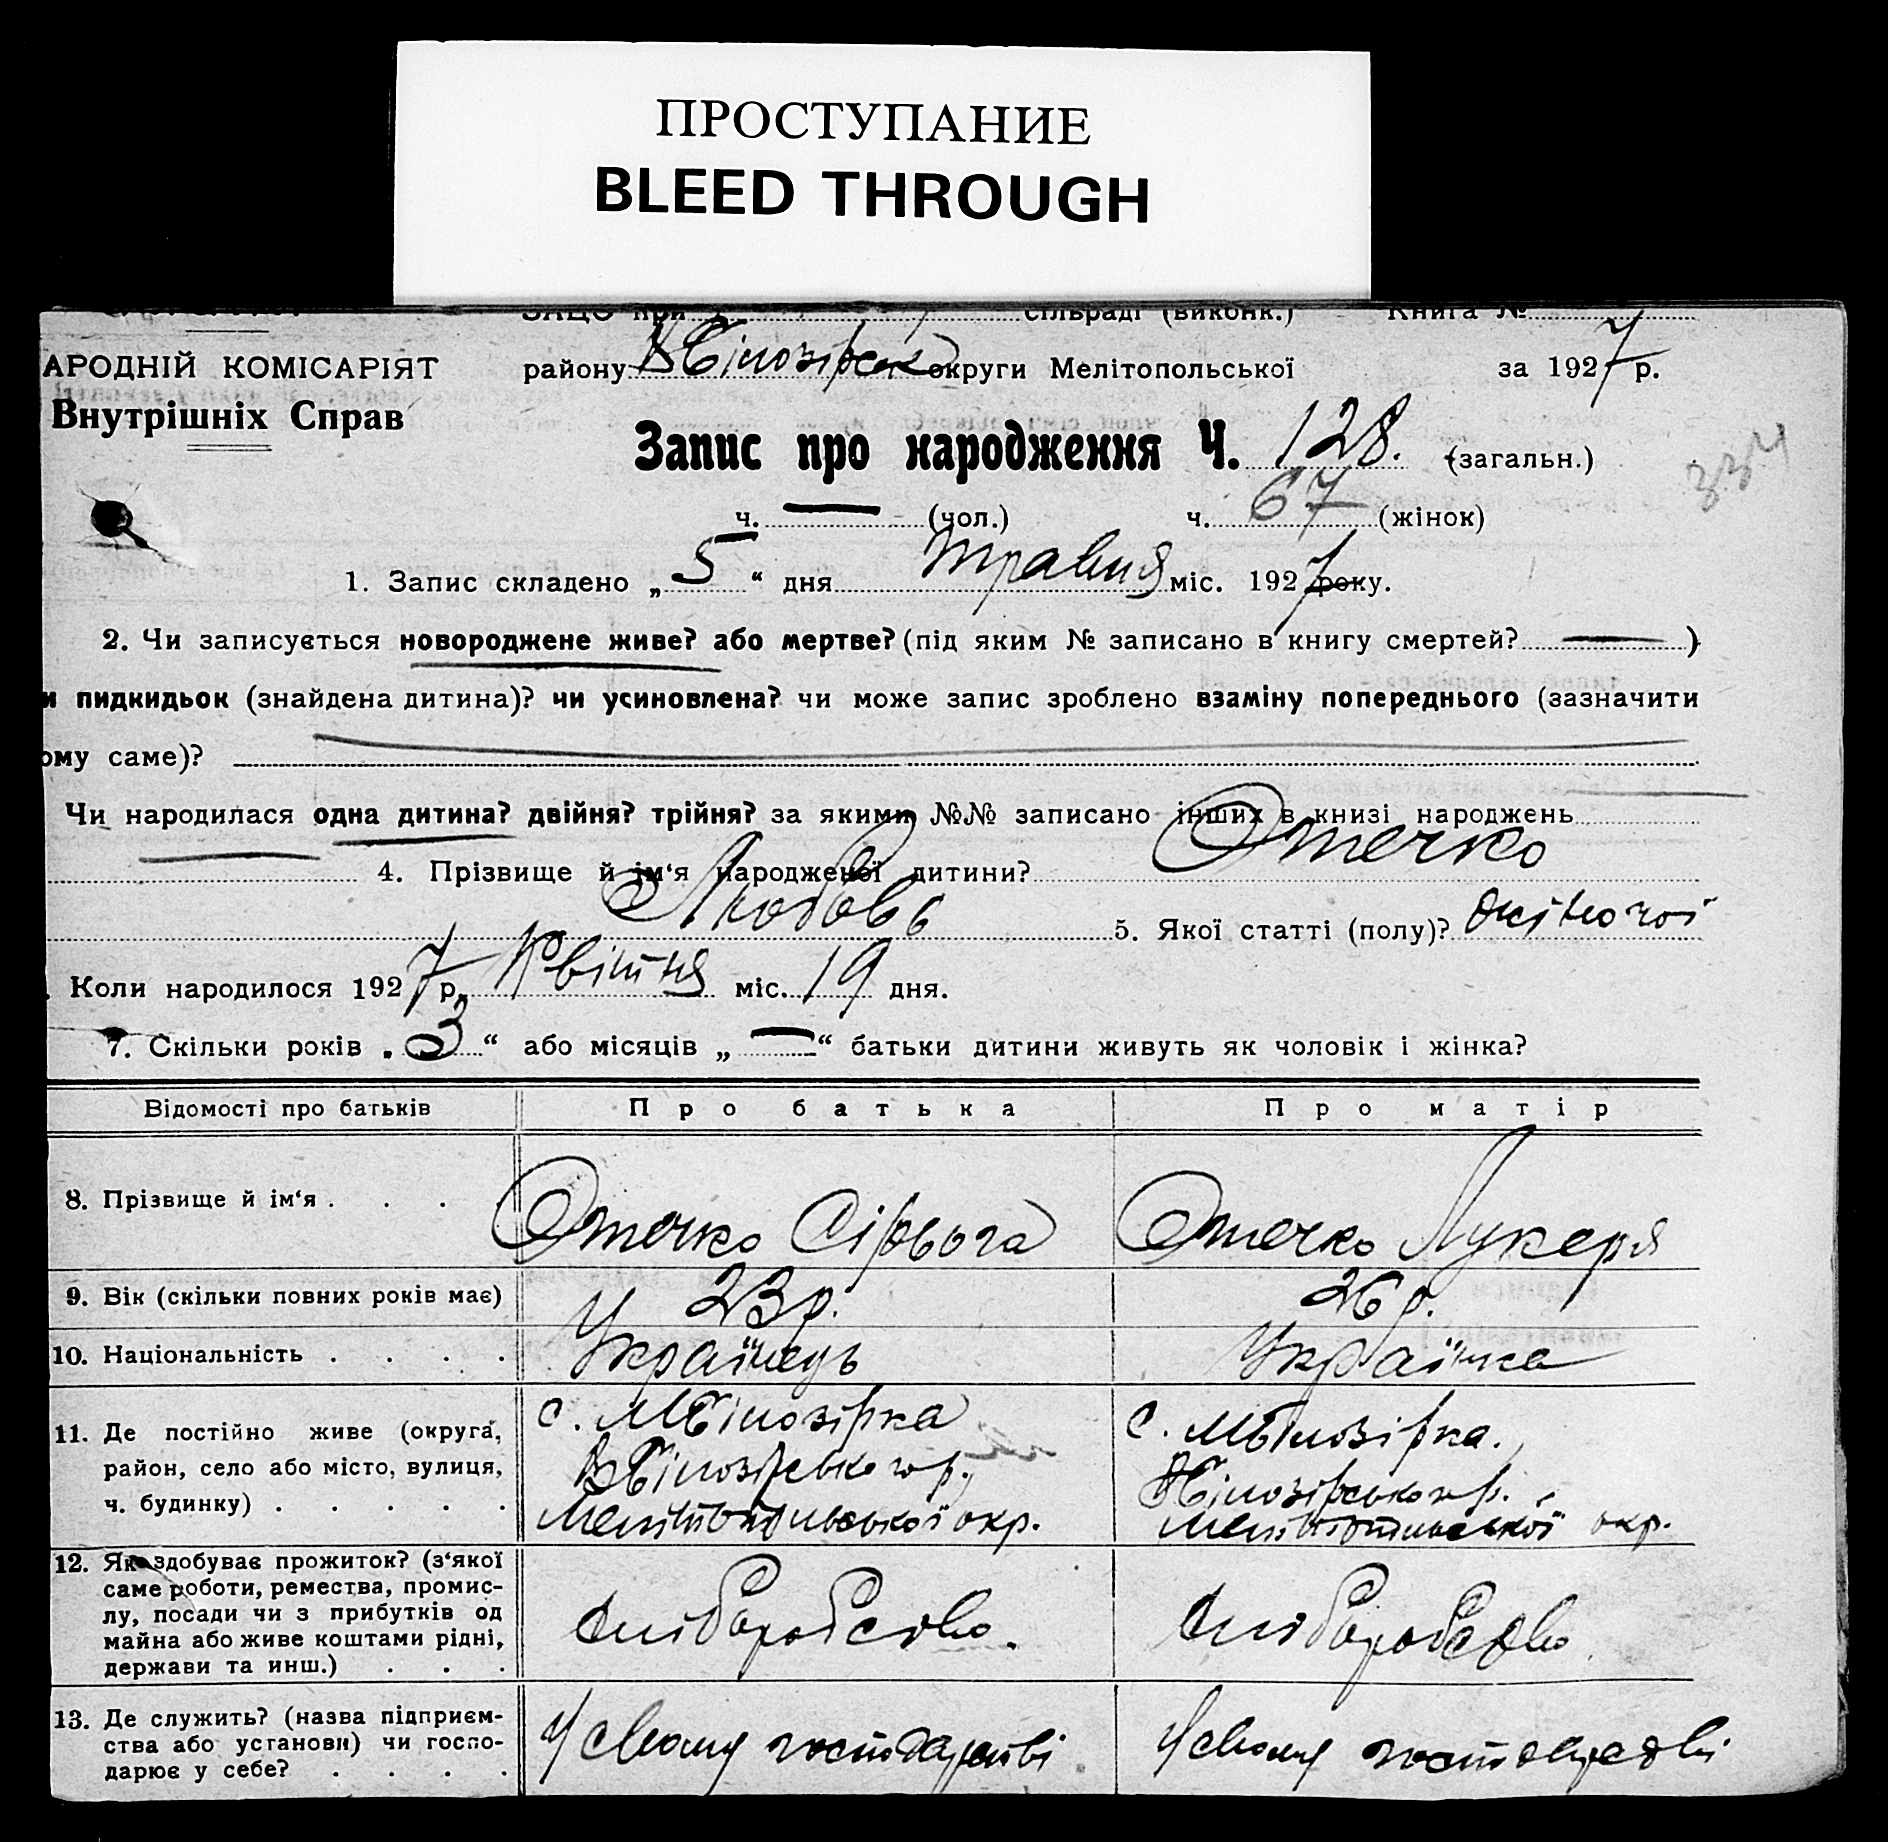 ПРОСТУПАНИЕ
BLEED THROUGH
ЗАЦС при сільраді (виконк.) Книга №
АРОДНІЙ КОМІСАРІЯТ району ВБілозірськ округи Мелітопольської за 1927 р.
Внутрішніх Справ
Запис про народження Ч. 128. (загальн.)
334
ч. — (чол.) ч. 67 (жінок)
1. Запис складено „ 5 “ дня травня міс. 1927 року.
2. Чи записується новороджене живе? або мертве? (під яким № записано в книгу смертей? — )
и пидкидьок (знайдена дитина)? чи усиновлена? чи може запис зроблено взаміну попереднього (зазначити
ому саме)?
Чи народилася одна дитина? двійня? трійня? за якими №№ записано інших в книзі народжень
4. Прізвище й ім‘я народженої дитини? Отечко
Любовь 5. Якої статті (полу)? жіночої
. Коли народилося 1927 р. Квітня міс. 19 дня.
7. Скільки років „ 3 “ або місяців „ — “ батьки дитини живуть як чоловік і жінка?
Відомості про батьків Про батька Про матір
8. Прізвище й ім‘я . . . Отечко Сірьога Отечко Лукеря
9. Вік (скільки повних років має) 23 р. 26 р.
10. Національність . . . . Українець Українка
11. Де постійно живе (округа, с. МБілозірка с. МБілозірка.
район, село або місто, вулиця, ВБілозірського р. ВБілозірського р.
ч. будинку) . . . . . Мелітопільської окр. Мелітопільської окр.
12. Як здобуває прожиток? (з‘якої
саме роботи, ремества, промис-
лу, посади чи з прибутків од хліборобство. хліборобство
майна або живе коштами рідні,
держави та инш.) . . .
13. Де служить? (назва підприєм-
ства або установи) чи госпо- У свому господарстві У свому господарстві
дарює у себе? . . . .